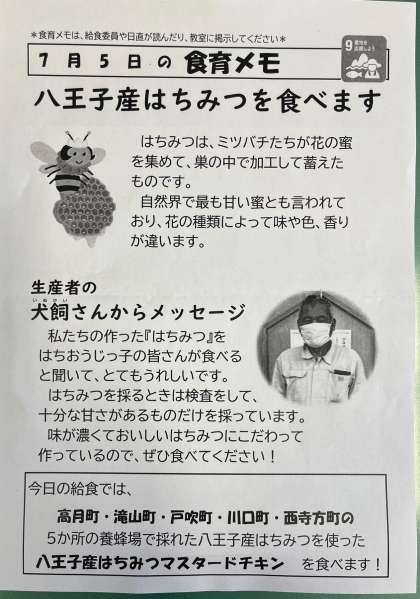 ＊食育メモは、給食委員や日直が読んだり、教室に掲示してください＊
７月５日の 食育メモ
9 産物を応援しよう
八王子産はちみつを食べます
はちみつは、ミツバチたちが花の蜜
を集めて、巣の中で加工して蓄えた
ものです。
自然界で最も甘い蜜とも言われて
おり、花の種類によって味や色、香り
が違います。
生産者の
犬飼さんからメッセージ
いぬかい
私たちの作った『はちみつ』を
はちおうじっ子の皆さんが食べる
と聞いて、とてもうれしいです。
はちみつを採るときは検査をして、
十分な甘さがあるものだけを採っています。
味が濃くておいしいはちみつにこだわって
作っているので、ぜひ食べてください！
今日の給食では、
高月町・滝山町・戸吹町・川口町・西寺方町の
５か所の養蜂場で採れた八王子産はちみつを使った
八王子産はちみつマスタードチキン を食べます！